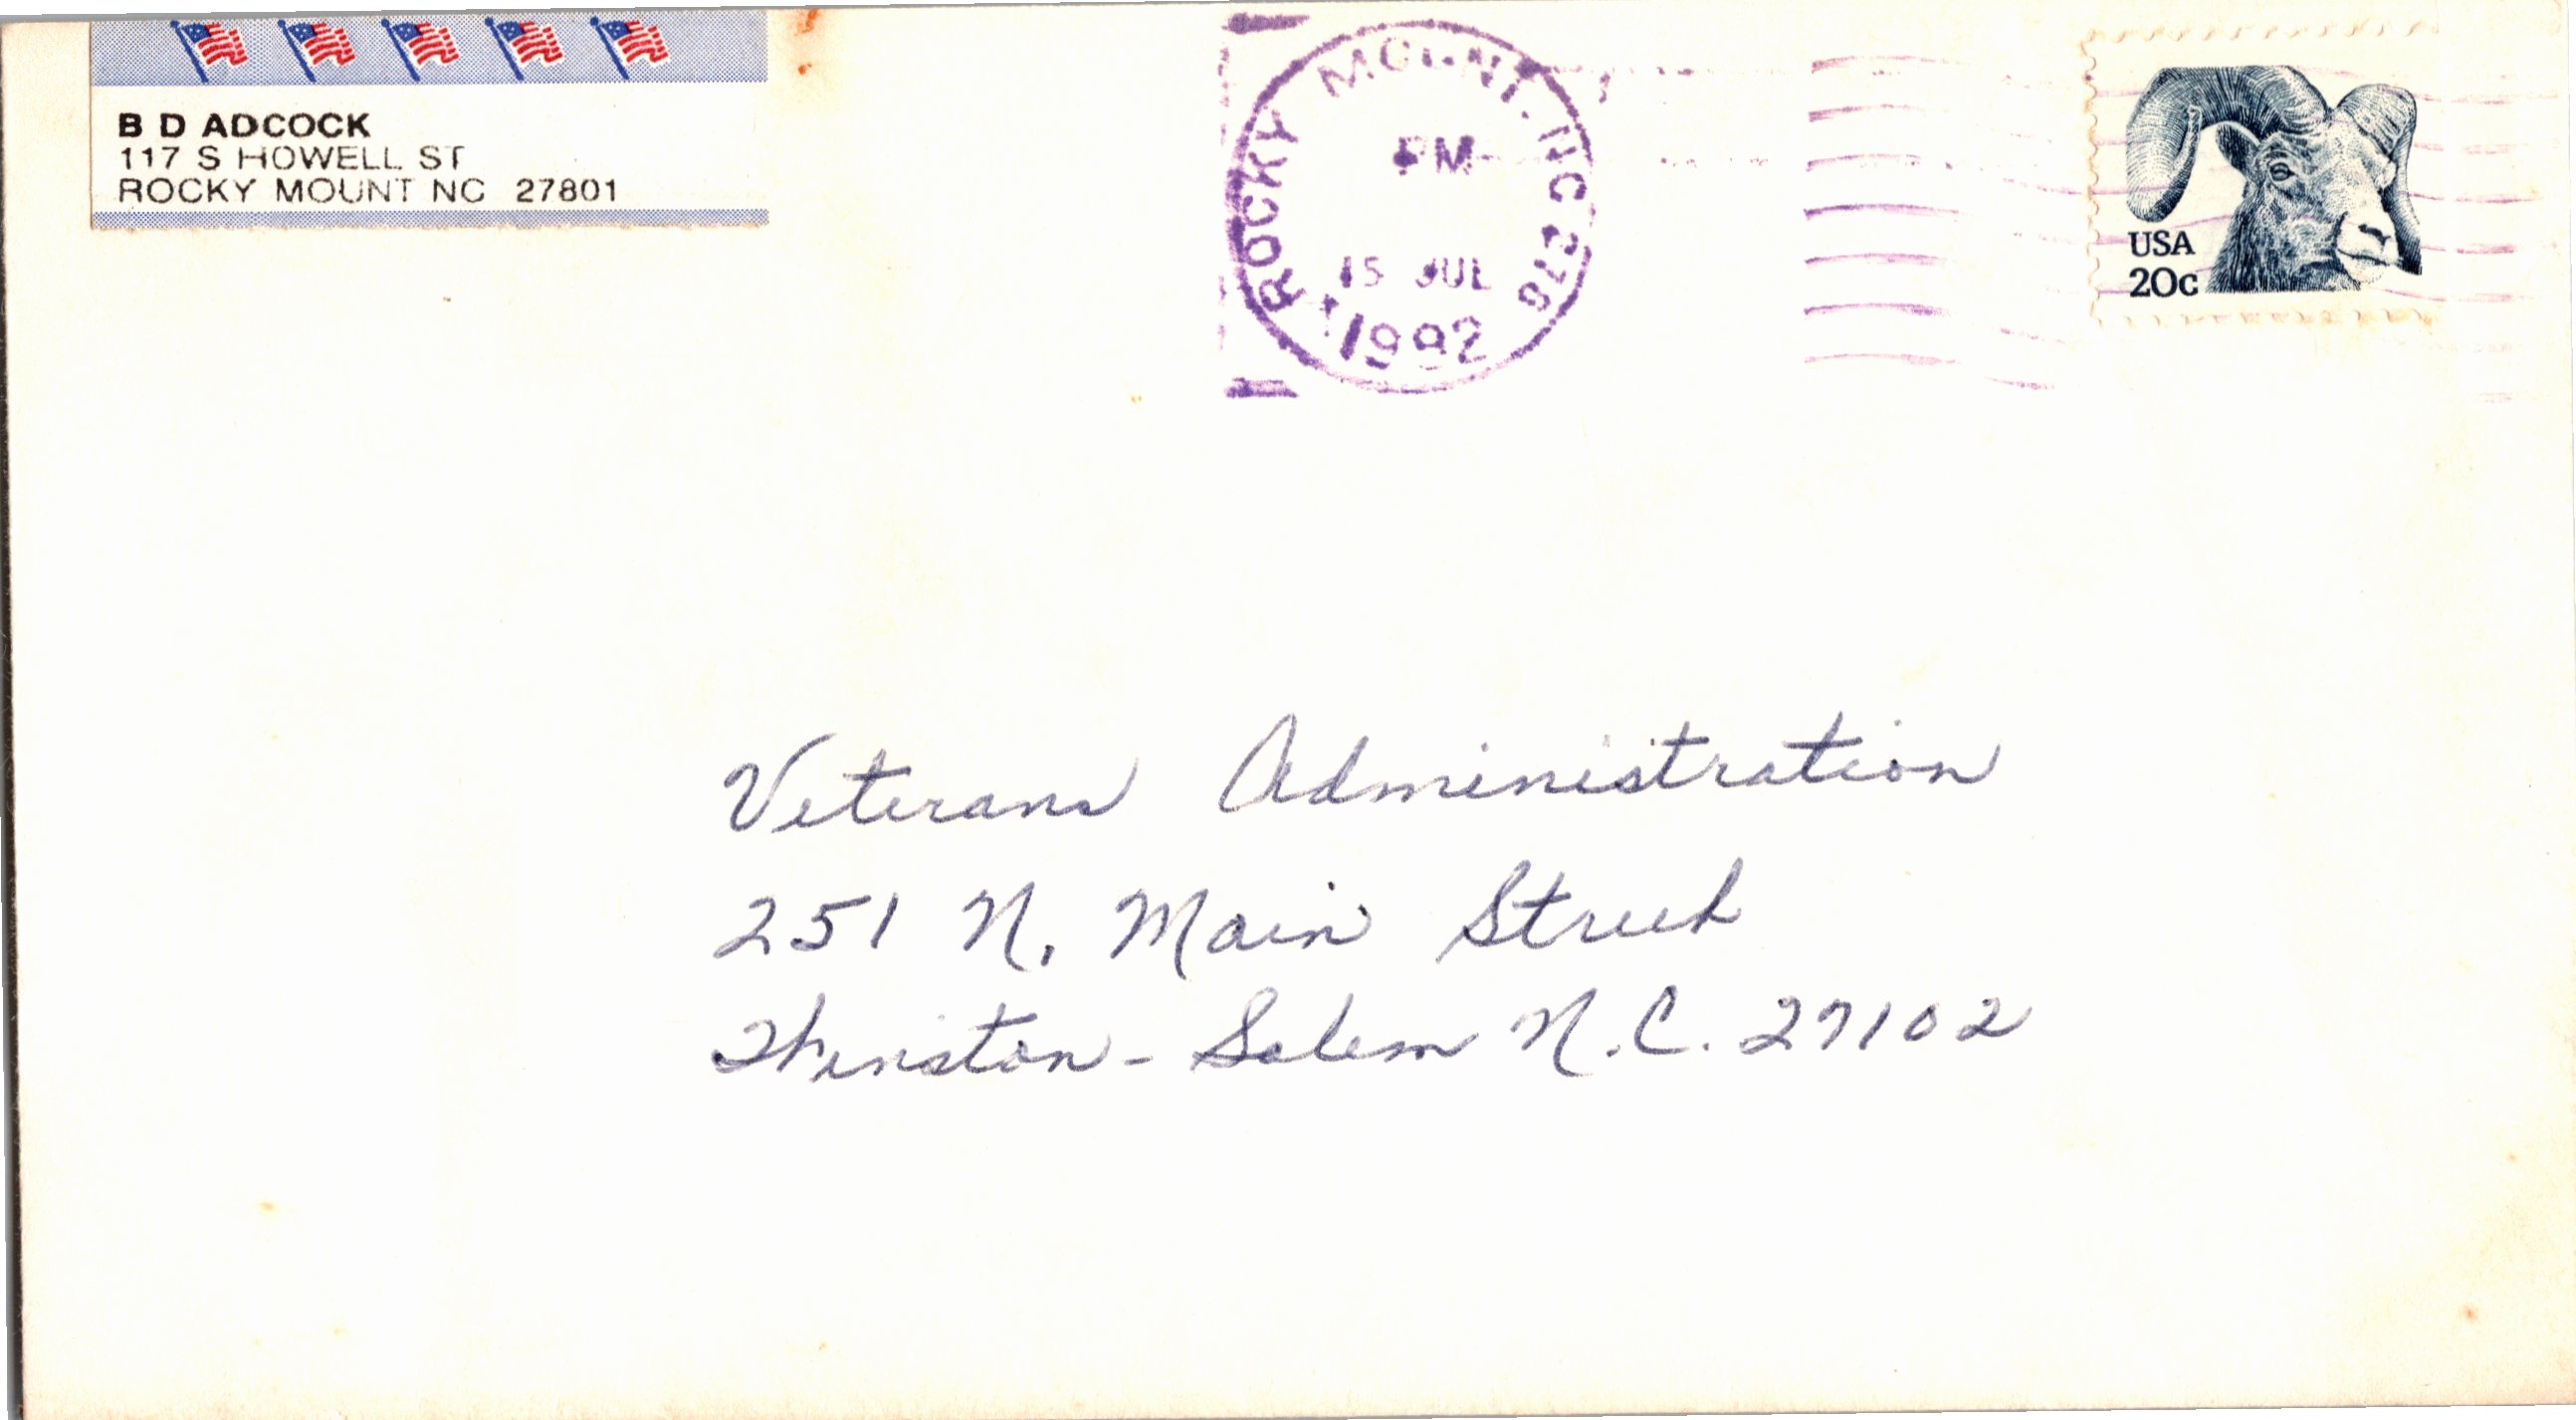 B D ADCOCK
117 S HOWELL ST
ROCKY MOUNT NC 27801
ROCKY MOUNT, NC 278
PM
15 JUL
1992
USA
20c
Veterans Administration
251 N. Main Street
Winston-Salem N.C. 27102